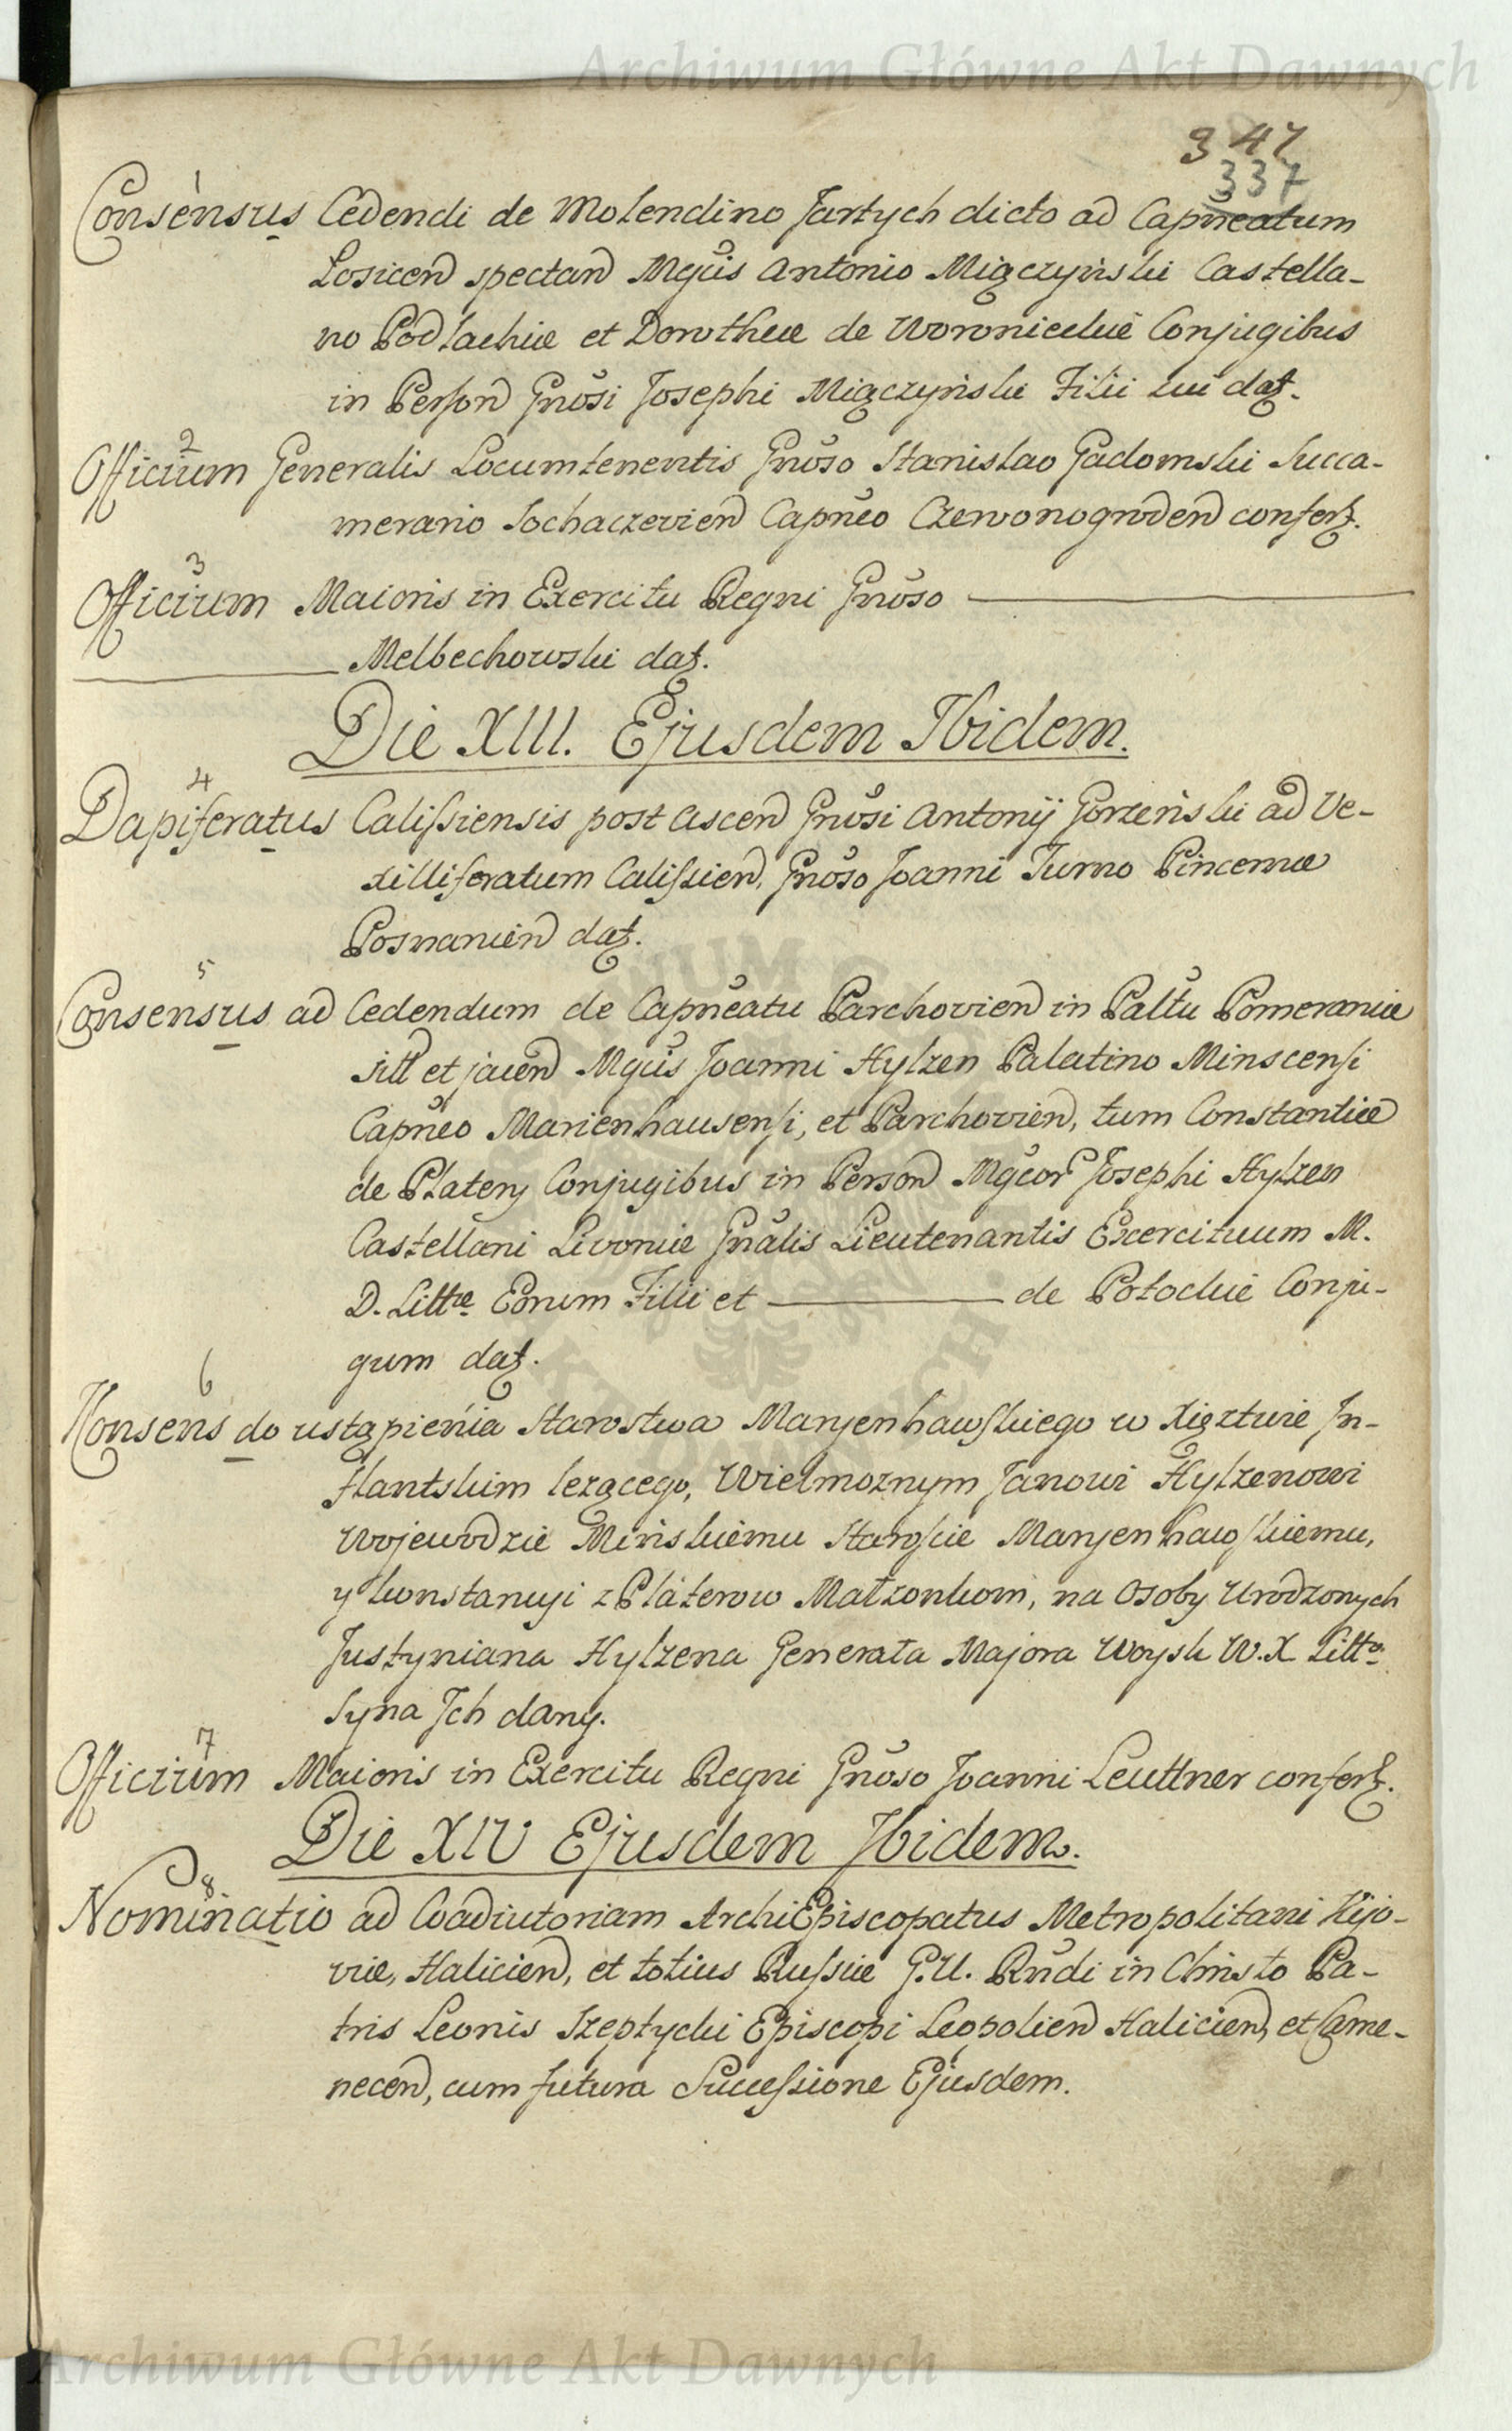 Archiwum Główne Akt Dawnych
347
337
1
Consensus Cedendi de Molendino Jartych dicto ad Capńeatum
Losicen spectan Mgcis Antonio Miączyński Castella-
no Podlachiæ et Dorotheæ de Woronieckie Conjugibus
in Person Gnosi Josephi Miączyński Filii sui dat.
2
Officium Generalis Locumtenentis Gnoso Stanislao Gadomski Succa-
merario Sochaczevien Capneo Czerwonogroden confert.
3
Officium Maioris in Exercitu Regni Gnoso
Melbechowski dat.
Die XIII. Ejusdem Ibidem.
4
Dapiferatus Calissiensis post ascen Gnosi Antonij Gorzeński ad Ve-
xilliferatum Calissien, Gnoso Joanni Turno Pincernæ
Posnanien dat.
5
Consensus ad Cedendum de Capneatu Parchovien in Paltu Pomeraniæ
sitt et jacen Mgcis Joanni Hylzen Palatino Minscensi
Capneo Marienhausensi, et Parchovien, tum Constantiæ
de Platery Conjugibus in Person Mgcor Josephi Hylzen
Castellani Livoniæ Gnalis Lieutenantis Exercituum M.
D. Littæ Eorum Filii et de Potockie Conju-
gum dat.
6
Konsens do ustąpienia Starostwa Maryenhawskiego w Xięztwie In-
flantskim lezącego, Wielmoznym Janowi Hylzenowi
Wojewodzie Mińskiemu Staroscie Maryenhawskiemu,
y Konstancyi z Platerow Małzonkom, na Osoby Urodzonych
Justyniana Hylzena Generała Majora Woysk W. X Litto
Syna Jch dany.
7
Officium Maioris in Exercitu Regni Gnoso Joanni Leuttner confert.
Die XIV Ejusdem Ibidem.
8
Nominatio ad Coadiutoriam ArchiEpiscopatus Metropolitani Kijo-
viæ, Halicien, et totius Russiæ G. U. Rndi in Christo Pa-
tris Leonis Szeptycki Episcopi Leopolien Halicien, et Came-
necen, cum futura Successione Ejusdem.
Archiwum Główne Akt Dawnych